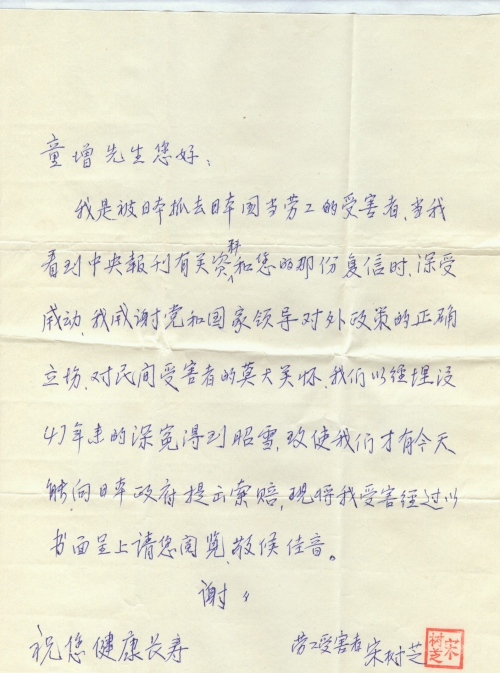 童增先生您好：
我是被日本抓去日本国当劳工的受害者，当我
看到中央報刊有关资料和您的那份复信时，深受
感动，我感谢党和国家领导对外政策的正确
立场，对民间受害者的莫大关怀，我们以經埋没
47年来的深冤得到昭雪，致使我们才有今天
能向日本政府提出索赔，现将我受害經过以
书面呈上请您阅览，敬侯佳音。
谢〻
祝您健康长寿
劳工受害者 宋树芝
宋树芝